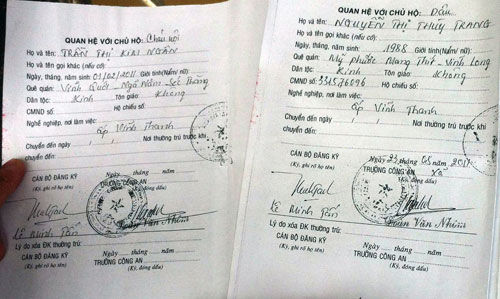 QUAN HỆ VỚI CHỦ HỘ: Cháu nội
Họ và tên: TRẦN THỊ KIM NGÂN
Họ và tên gọi khác (nếu có):
Ngày, tháng, năm sinh: 01/02/2011 Giới tính (Nam/nữ):
Quê quán: Vĩnh Quới - Ngã Năm - Sóc Trăng
Dân tộc: Kinh Tôn giáo: Không
CMND số: Hộ chiếu số:
Nghề nghiệp, nơi làm việc:
Ấp Vĩnh Thanh
Chuyển đến ngày Nơi thường trú trước khi
chuyển đến:
Ngày tháng năm
CÁN BỘ ĐĂNG KÝ
(Ký, ghi rõ họ tên)
TRƯỞNG CÔNG AN
Lê Minh Tấn
Văn Nhiều
Lý do xóa ĐK thường trú:
Ngày tháng năm
CÁN BỘ ĐĂNG KÝ
(Ký, ghi rõ họ tên)
TRƯỞNG CÔNG AN
(Ký, đóng dấu)
QUAN HỆ VỚI CHỦ HỘ: Dâu
Họ và tên: NGUYỄN THỊ THÚY TRANG
Họ và tên gọi khác (nếu có):
Ngày, tháng, năm sinh: 1988 Giới tính (Nam/nữ):
Quê quán: Mỹ Phước Mang Thít - Vĩnh Long
Dân tộc: Kinh Tôn giáo: Không
CMND số: 331576096 Hộ chiếu số:
Nghề nghiệp, nơi làm việc:
Ấp Vĩnh Thanh
Chuyển đến ngày Nơi thường trú trước khi
chuyển đến:
Ngày 23 tháng 05 năm 2011
CÁN BỘ ĐĂNG KÝ
(Ký, ghi rõ họ tên)
TRƯỞNG CÔNG AN Xã
(Ký, đóng dấu)
Lê Minh Tấn
Văn Nhiều
Lý do xóa ĐK thường trú:
Ngày tháng năm
CÁN BỘ ĐĂNG KÝ
(Ký, ghi rõ họ tên)
TRƯỞNG CÔNG AN
(Ký, đóng dấu)